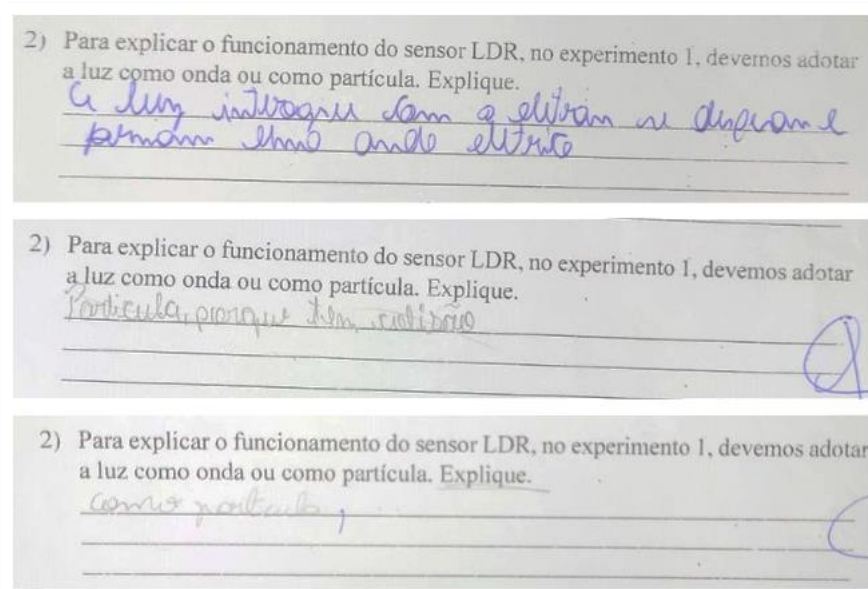 2) Para explicar o funcionamento do sensor LDR, no experimento 1, devemos adotar
a luz como onda ou como partícula. Explique.
a luz interagiu com o elétron se
onda elétrica
2) Para explicar o funcionamento do sensor LDR, no experimento 1, devemos adotar
a luz como onda ou como partícula. Explique.
Particula, porque tem colisão
2) Para explicar o funcionamento do sensor LDR, no experimento 1, devemos adotar
a luz como onda ou como partícula. Explique.
como particula,